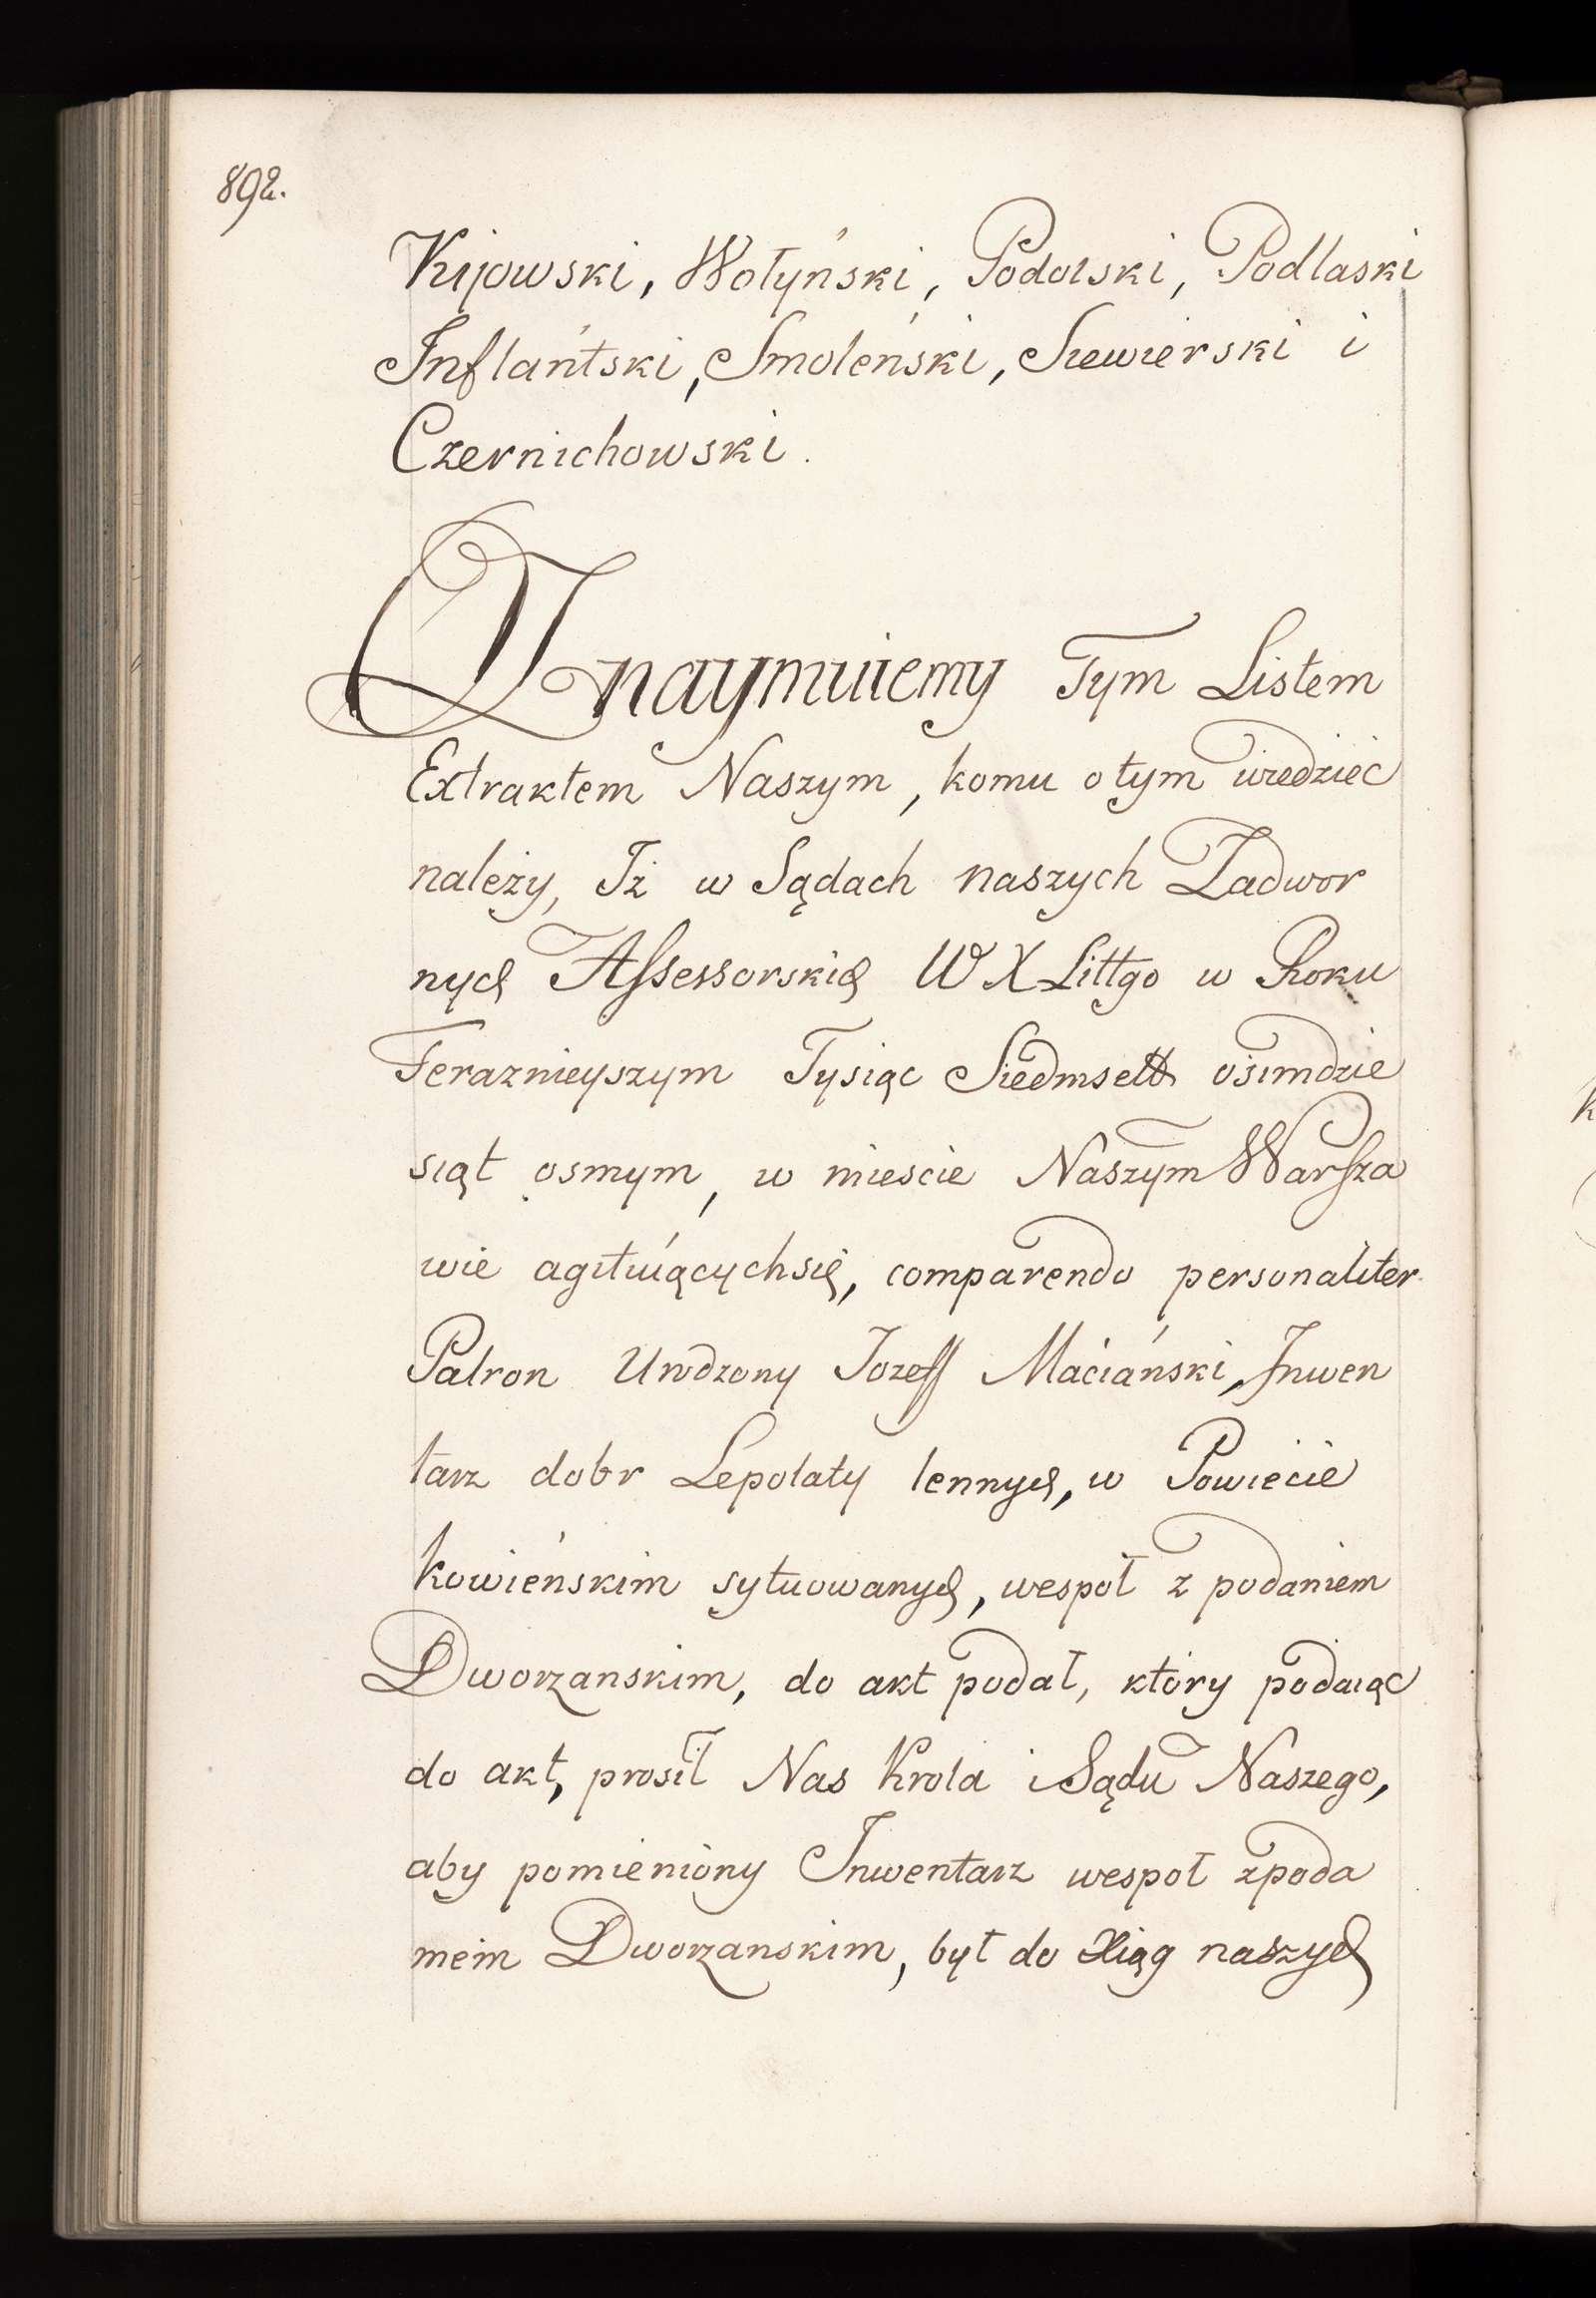 892.
Kijowski, Wołyński, Podolski, Podlaski
Inflantski, Smoleński, Siewierski i
Czernichowski.
Oznaymuiemy Tym Listem
Extraktem Naszym, komu o tym wiedzieć
należy, Iż w Sądach naszych Zadwor
nych Assessorskich W X Littgo w Roku
Teraznieyszym Tysiąc Siedmset osimdzie
siąt osmym, w miescie Naszym Warsza
wie agituiącychsię, comparendo personaliter
Patron Urodzony Jozeff Maciański, Inwen
tarz dobr Lepolaty lennych, w Powiecie
kowieńskim sytuowanych, wespoł z podaniem
Dworzanskim, do akt podał, który podaiąc
do akt, prosił Nas Krola i Sądu Naszego,
aby pomieniony Inwentarz wespoł z poda
niem Dworzanskim, był do Xiąg naszych